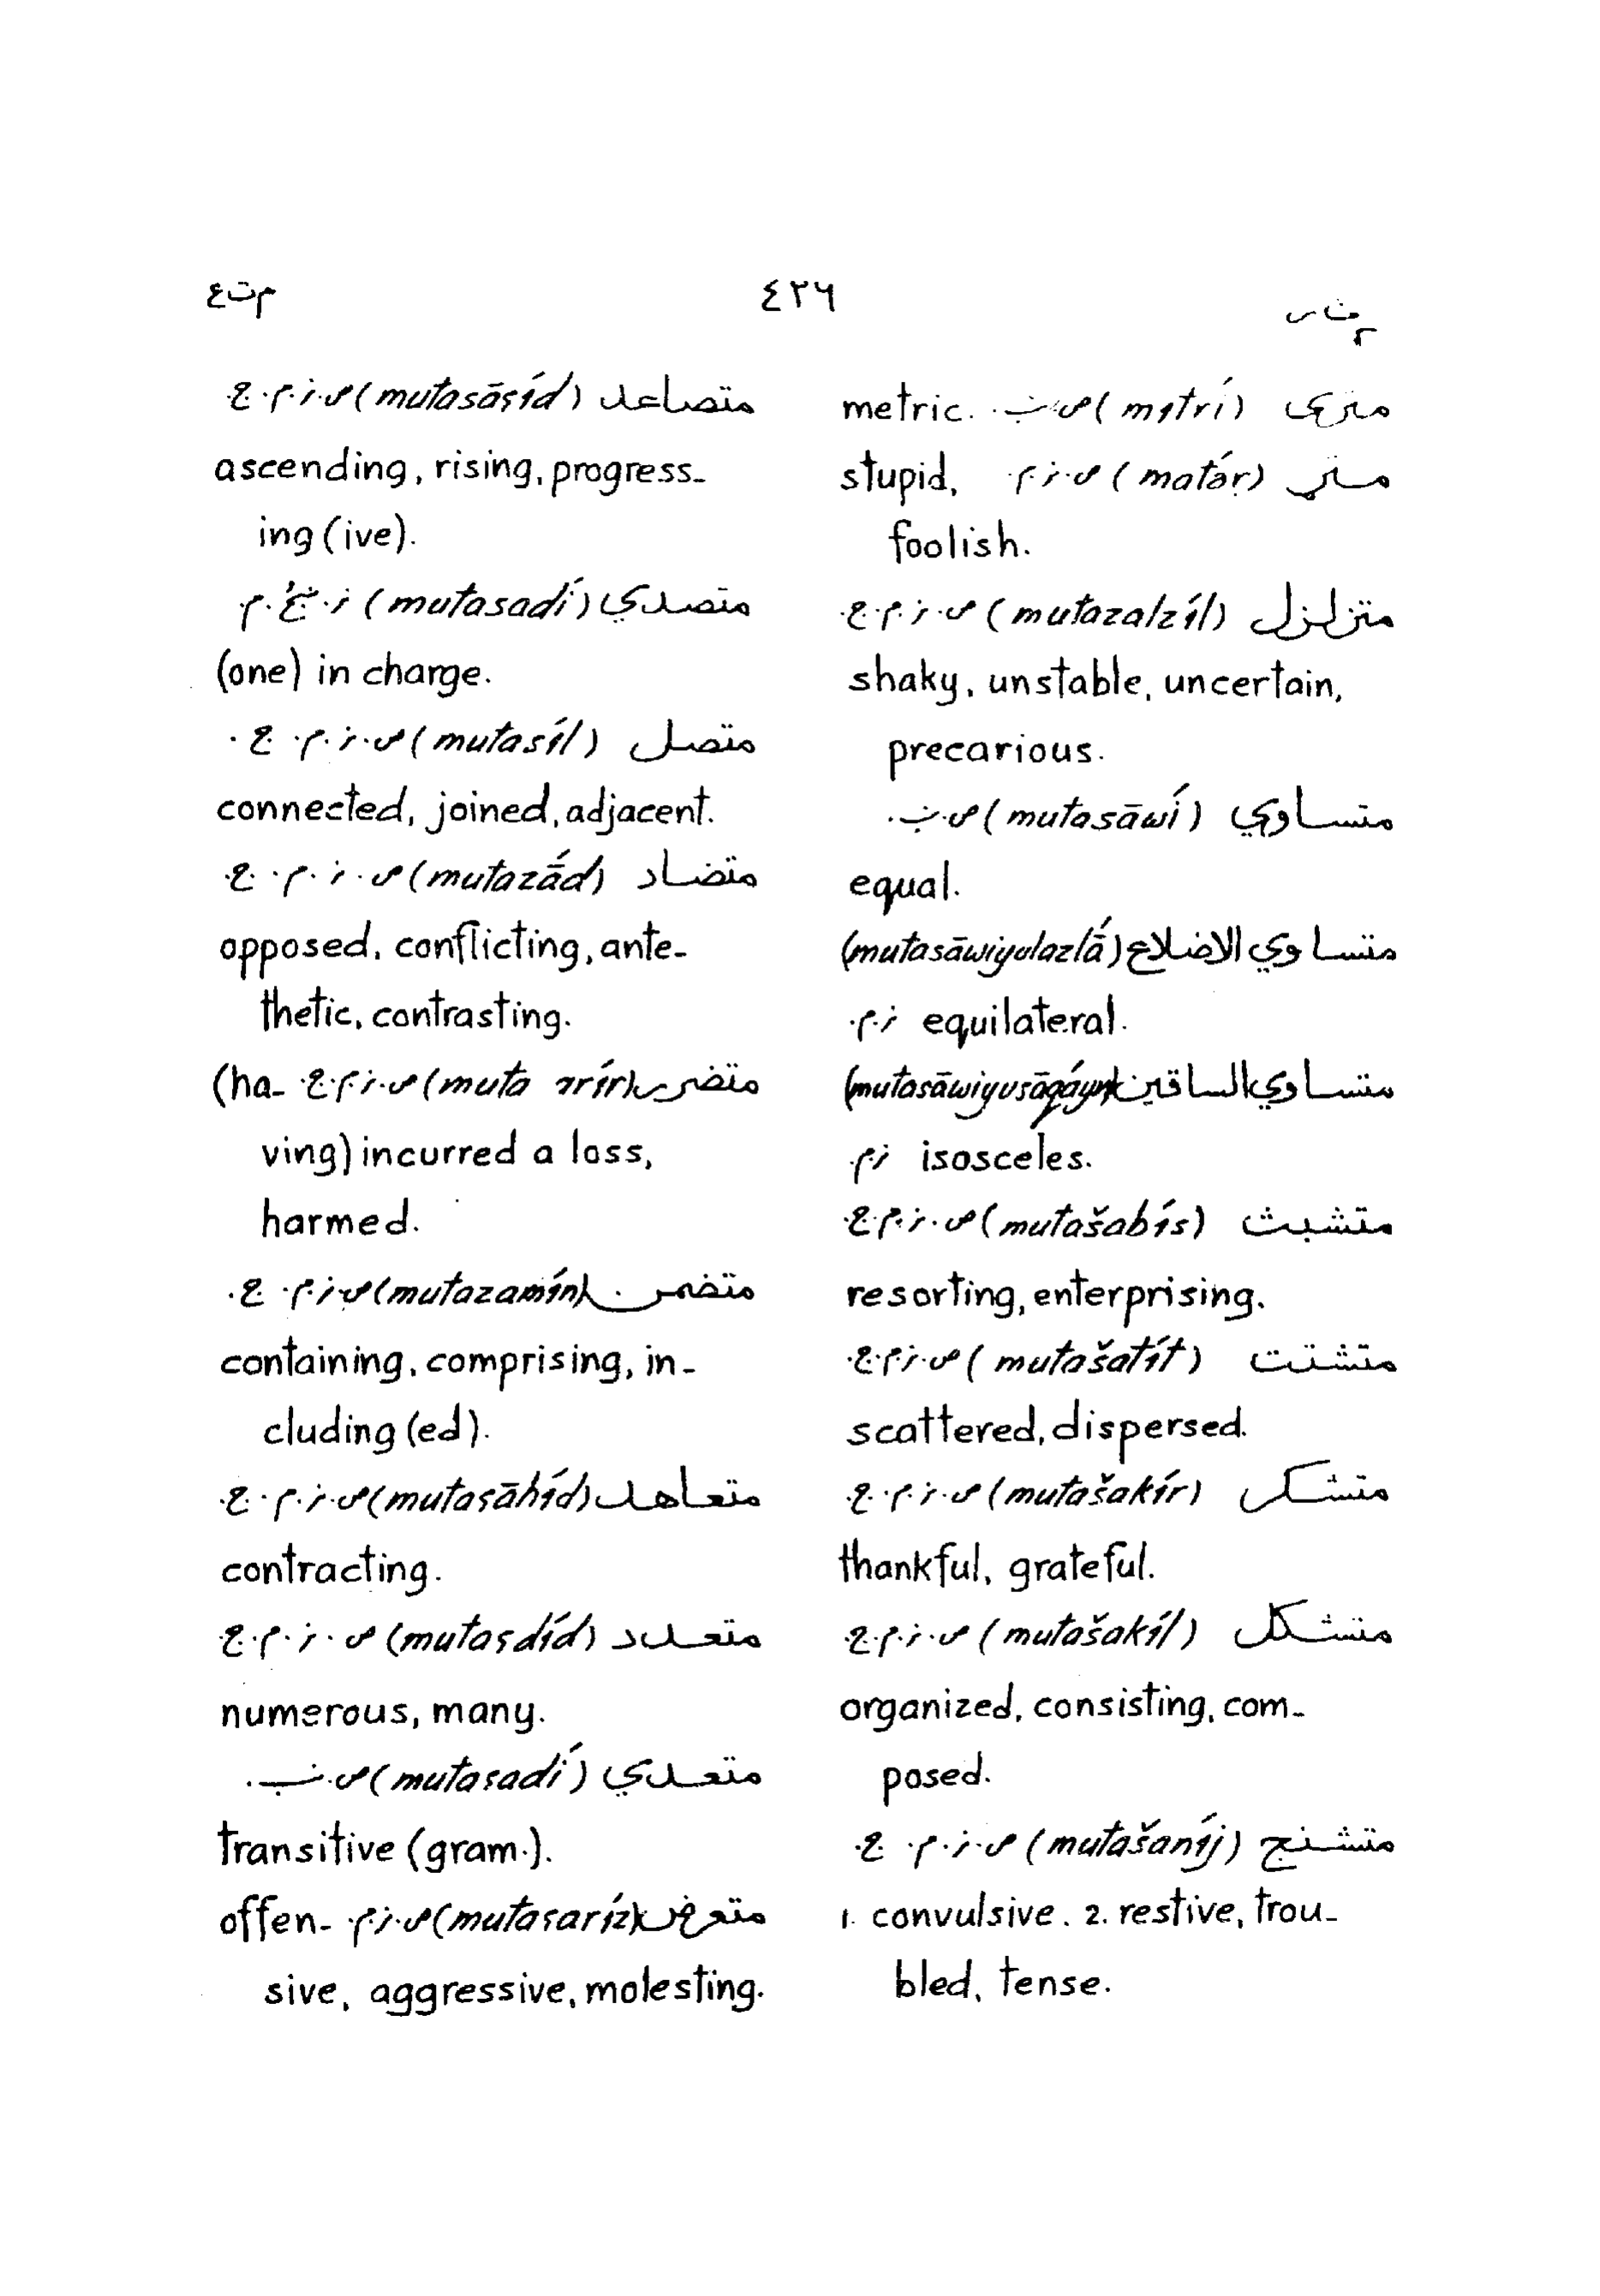 ٤٢٦
م ت ع
متری (mitrí) ص.نب. metric.
(matə́r) ص.ز.م. stupid,
foolish.
متزلزل (mutazalzíl) ص.ز.م.ج.
shaky, unstable, uncertain,
precarious.
متساوي (mutasāwí) ص.نب.
equal.
متساوي الاضلاع (mutasāwiyulazlā́)
ز.م. equilateral.
متساوي الساقین (mutasāwiyusāqáyn)
ز.م isosceles.
متشبث (mutašabís) ص.ز.م.ج.
resorting, enterprising.
متشتت (mutašatít) ص.ز.م.ج.
scattered, dispersed.
متشکر (mutašakír) ص.ز.م.ج.
thankful, grateful.
متشکل (mutašakíl) ص.ز.م.ج.
organized, consisting, com-
posed.
متشنج (mutašaníj) ص.ز.م.ج.
1. convulsive. 2. restive, trou-
bled, tense.
متصاعد (mutasāʕíd) ص.ز.م.ج.
ascending, rising, progress-
ing (ive).
متصدي (mutasadí) ز. م.
(one) in charge.
متصل (mutasíl) ص.ز.م.ج.
connected, joined, adjacent.
متضاد (mutazā́d) ص.ز.م.ج.
opposed, conflicting, ante-
thetic, contrasting.
متضرر ص.ز.م.ج. (ha-
ving) incurred a loss,
harmed.
متضمن (mutazamín) ص.ز.م.ج.
containing, comprising, in-
cluding (ed).
متعاهد (mutaʕāhíd) ص.ز.م.ج.
contracting.
متعدد (mutaʕdíd) ص.ز.م.ج.
numerous, many.
متعدي (mutaʕadí) ص.نب.
transitive (gram.).
متعرض (mutaʕaríz) ص.ز.م. offen-
sive, aggressive, molesting.